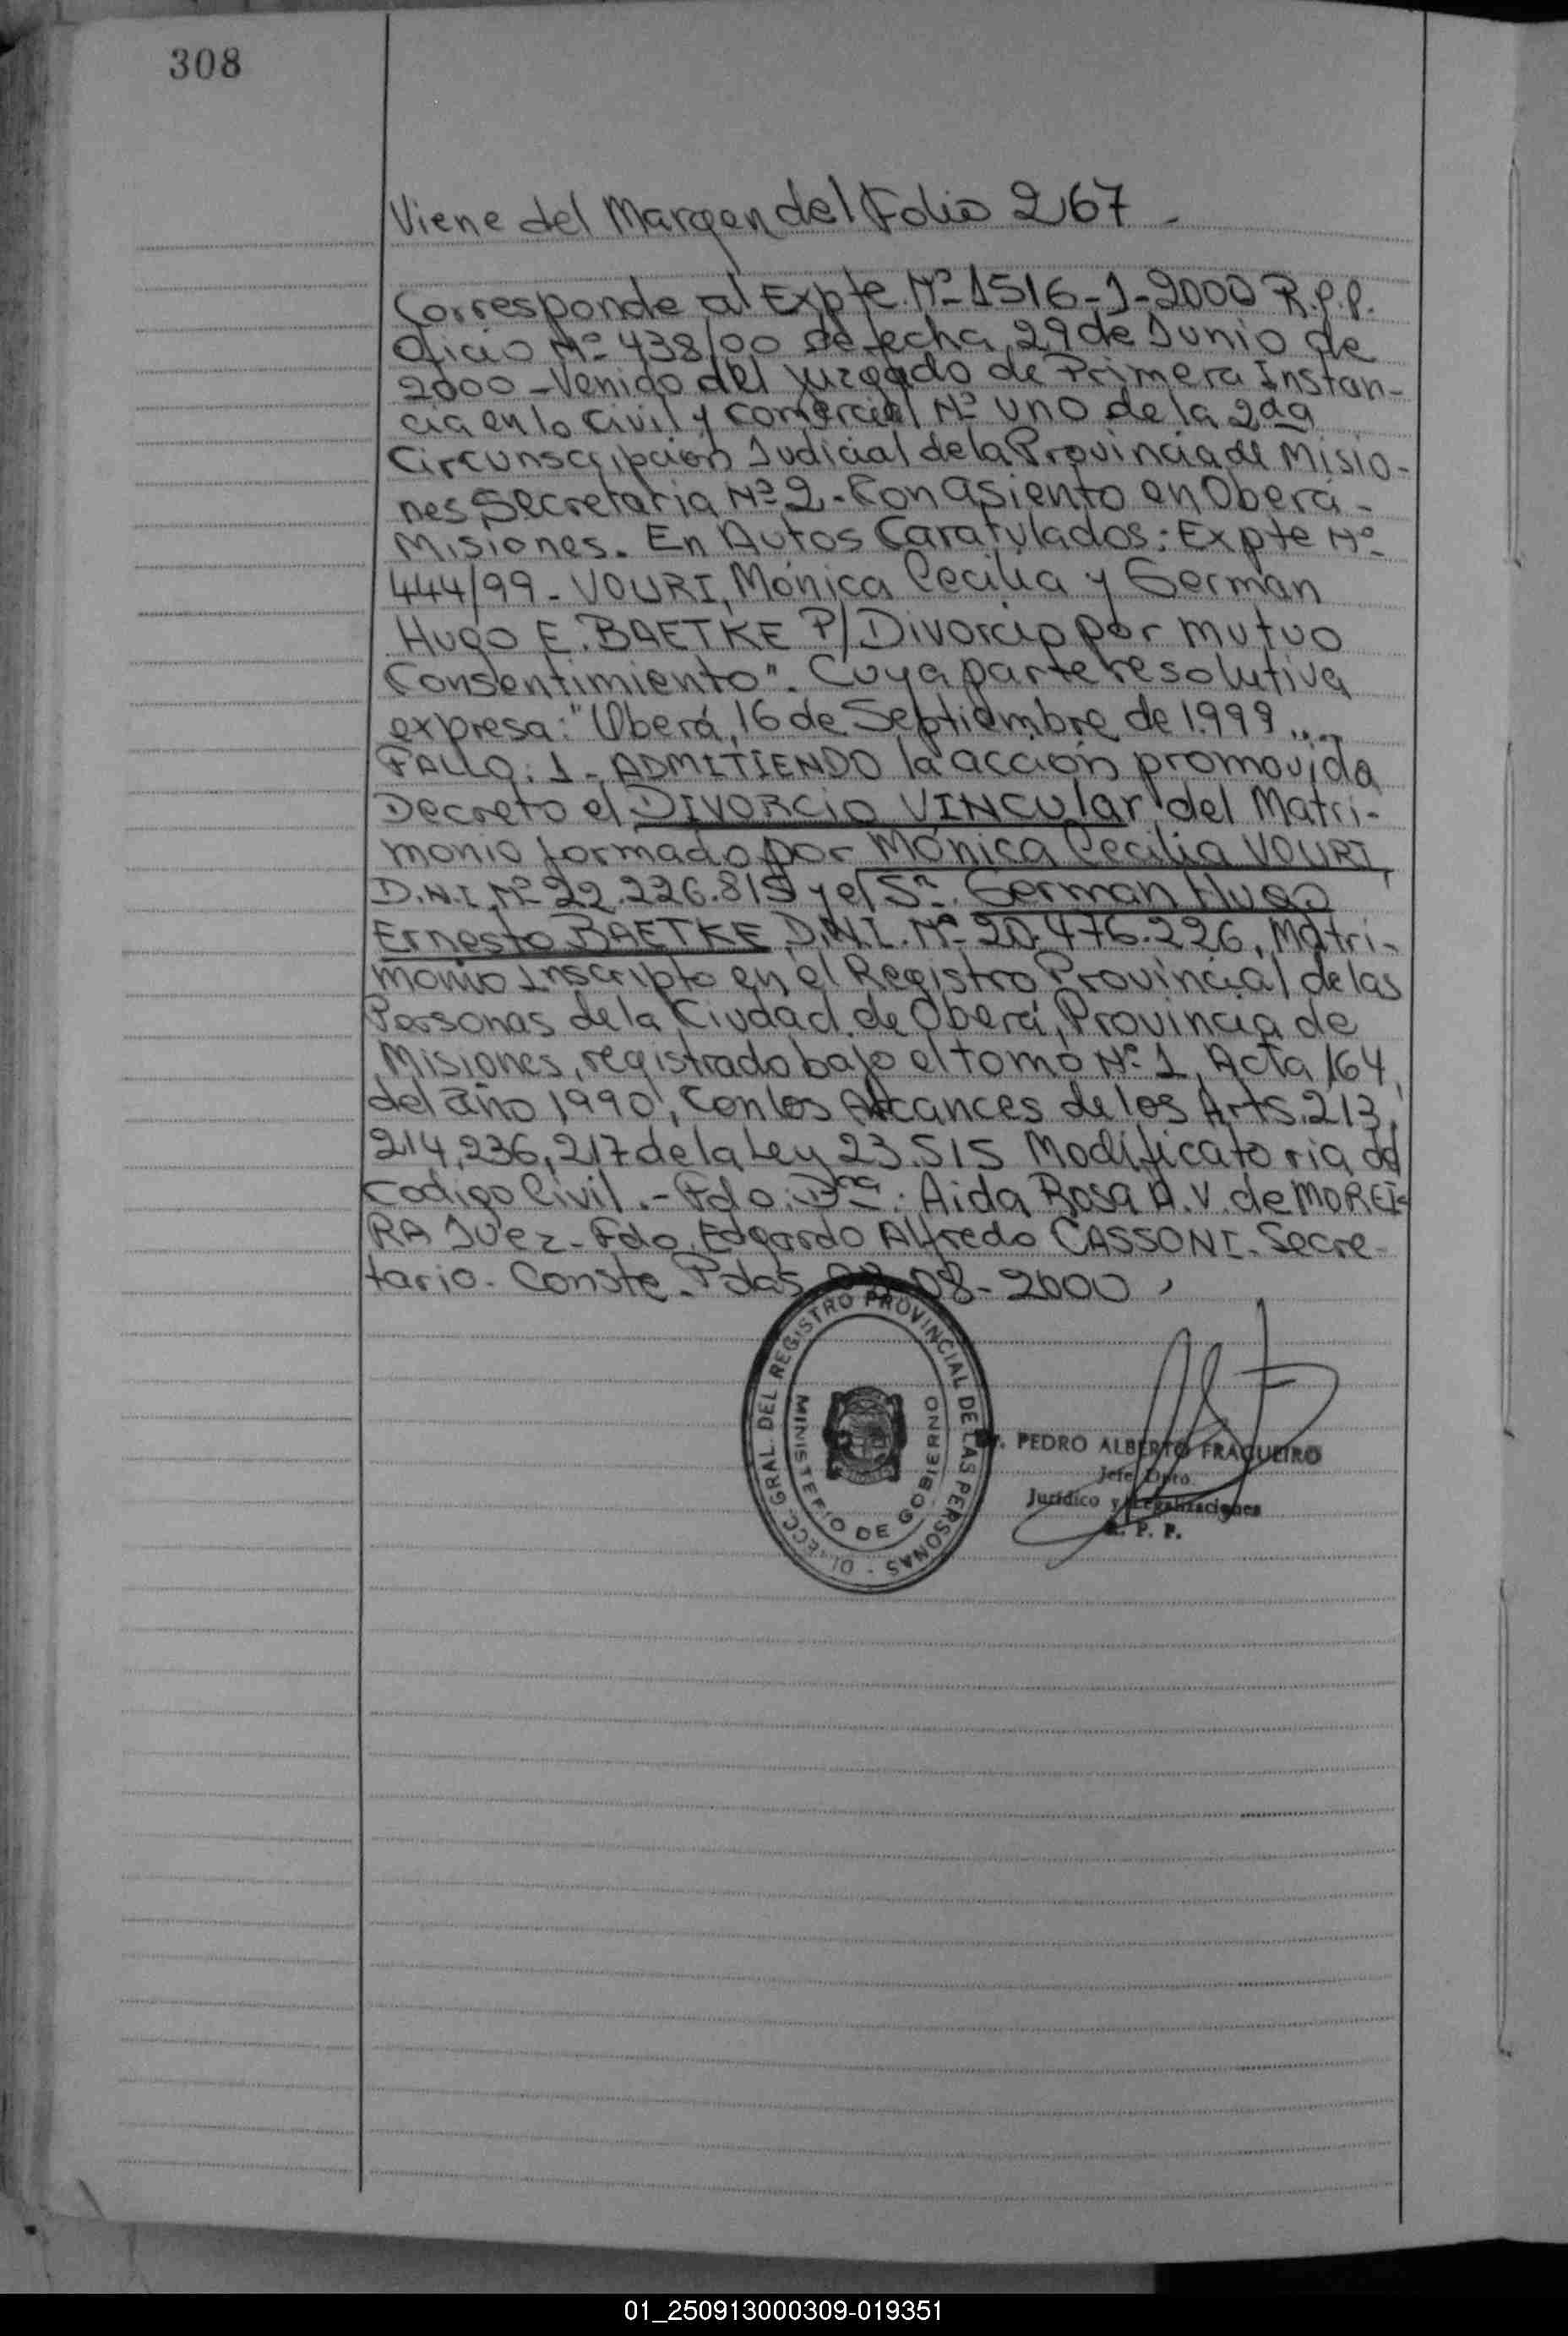 308
Viene del Margen del Folio 267 -
Corresponde al Expte. Nº 1516-J-2000 R.P.P.
Oficio Nº 438/00 de fecha 29 de Junio de
2000 - Venido del Juzgado de Primera Instan-
cia en lo Civil y Comercial Nº uno de la 2da
Circunscripción Judicial de la Provincia de Misio-
nes, Secretaria Nº 2. Con asiento en Oberá -
Misiones. En Autos Caratulados: Expte Nº
444/99 - VOURI, Mónica Cecilia y German
Hugo E. BAETKE P/ Divorcio por mutuo
Consentimiento". Cuya parte resolutiva
expresa: "Oberá, 16 de Septiembre de 1.999 ....
FALLO: 1 - ADMITIENDO la acción promovida
Decreto el DIVORCIO VINCULar del Matri-
monio formado por Mónica Cecilia VOURI,
D.N.I. Nº 22.226.815 y el Sr. German Hugo
Ernesto BAETKE D.N.I. Nº 20.476.226, Matri-
monio Inscripto en el Registro Provincial de las
Personas de la Ciudad de Oberá, Provincia de
Misiones, registrado bajo el tomo Nº 1, Acta 164,
del año 1990, Con los Alcances de los Arts. 213,
214, 236, 217 de la Ley 23.515 Modificatoria del
Codigo Civil. - Fdo: Dra. Aida Rosa A. V. de MOREI-
RA Juez - Fdo. Edgardo Alfredo CASSONI - Secre-
tario. Conste. Pdas 08-2000
DIRECC. GRAL. DEL REGISTRO PROVINCIAL DE LAS PERSONAS -
MINISTERIO DE GOBIERNO
Dr. PEDRO ALBERTO FRAGUEIRO
Jefe Dpto.
Jurídico y Legalizaciones
R. P. P.
01_250913000309-019351